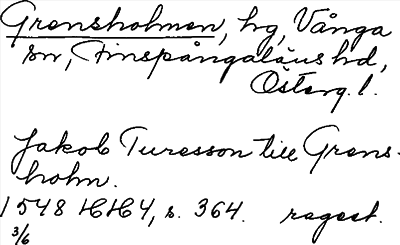 Grensholmen, hg, Vånga
sn, Finspångaläns hd,
Österg. l.
Jakob Turesson till Grens-
holm.
1548 HH 4, s. 364. regest.
3/6